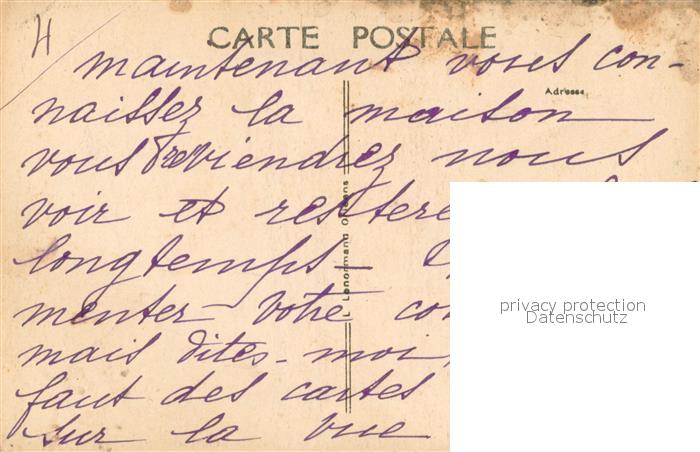 4
CARTE POSTALE
maintenant vous con-
Adresse
naissez la maison
vous reviendrez nous
voir et restere
longtemps -
menter votre co
mais dites-moi,
faut des cartes
sur la vue
L. Lenormand Orléans
privacy protection
Datenschutz